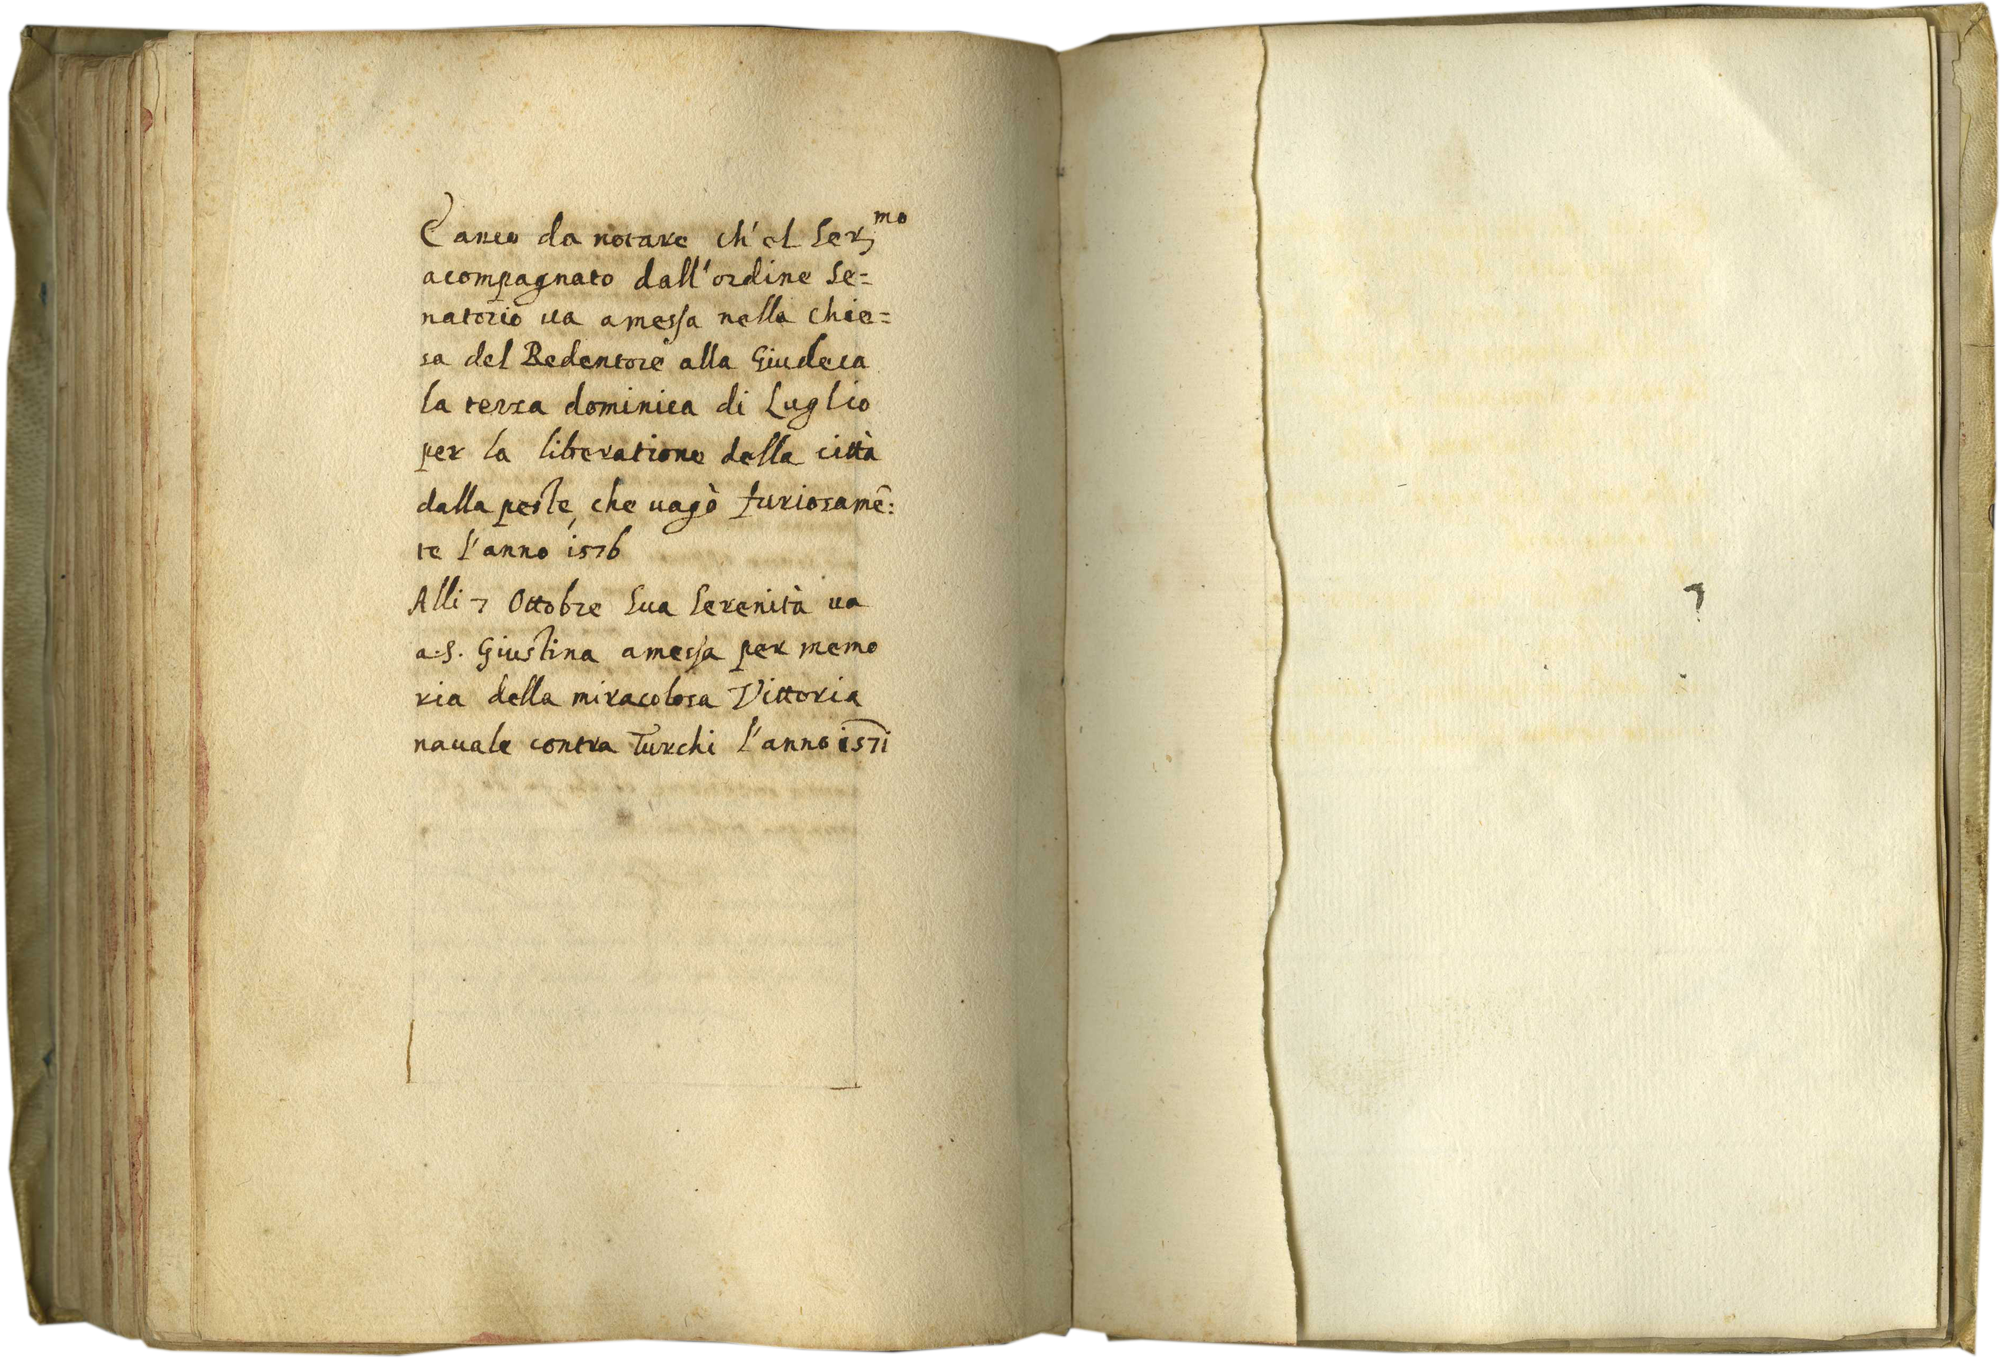 È anco da notare ch'el Ser.mo
acompagnato dall'ordine Se=
natorio ua a messa nella Chie=
sa del Redentore alla Giudeca
la terza dominica di Luglio
per la liberatione della città
dalla peste, che uagò furiosamē:
te l'anno 1576
Alli 7 Ottobre Sua Serenità ua
a S. Giustina a messa per memo
ria della miracolosa Vittoria
nauale contra Turchi l'anno 1571